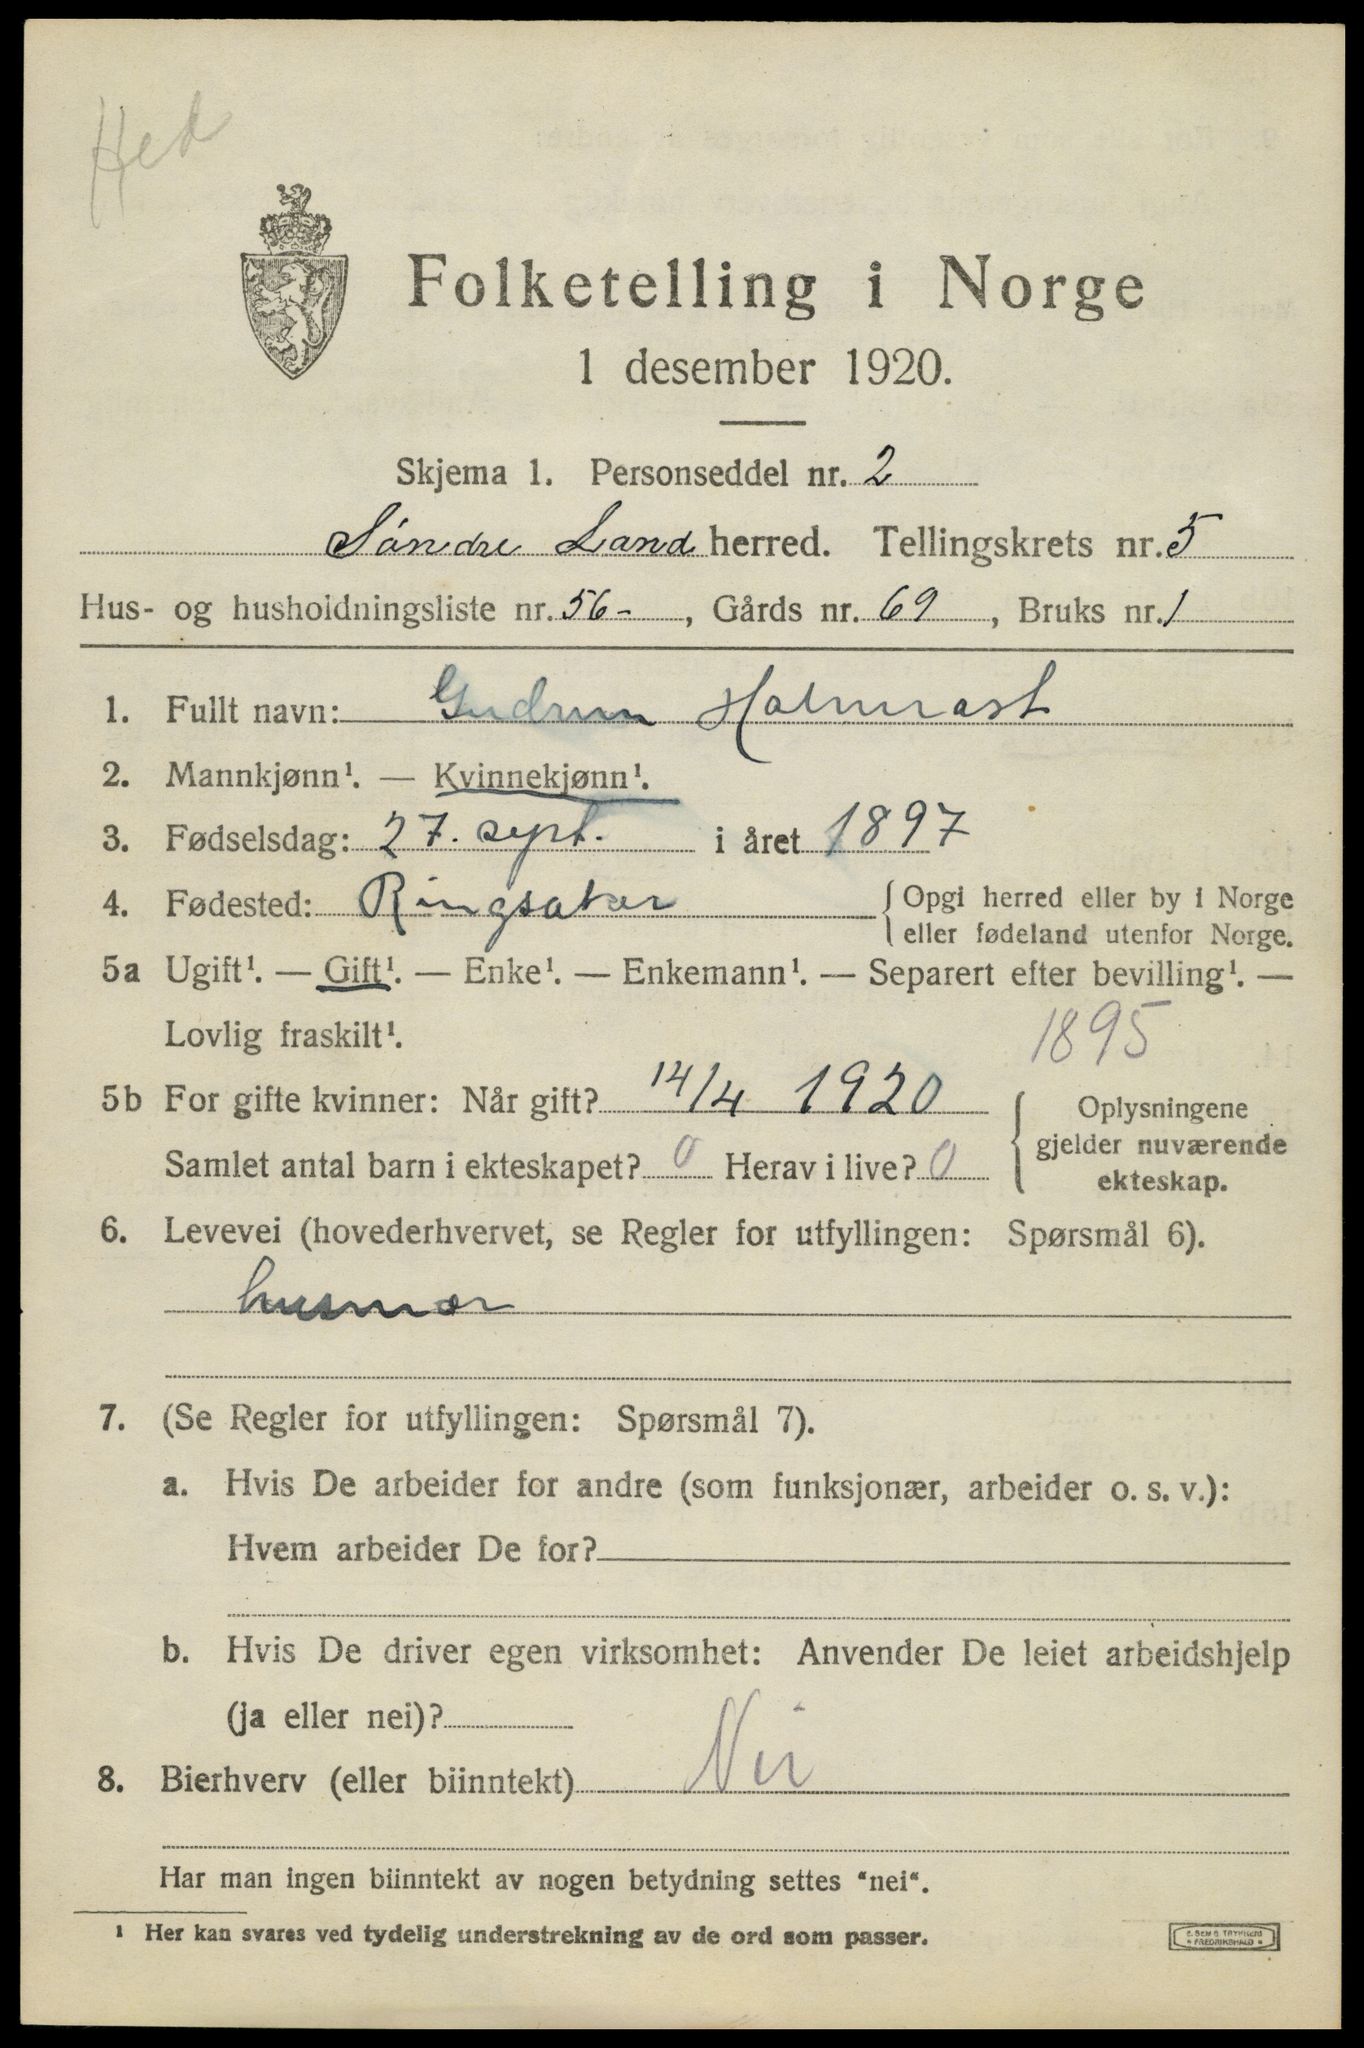 Hed
Folketelling i Norge
1 desember 1920.
Skjema 1. Personseddel nr. 2
Søndre Land herred. Tellingskrets nr. 5
Hus- og husholdningsliste nr. 56-, Gårds nr. 69, Bruks nr. 1
1. Fullt navn: Gudrun
2. Mannkjønn¹. — Kvinnekjønn¹.
3. Fødselsdag: 27. sept. i året 1897
4. Fødested: Ringsaker { Opgi herred eller by i Norge
eller fødeland utenfor Norge.
5a Ugift¹. — Gift¹. — Enke¹. — Enkemann¹. — Separert efter bevilling¹. —
Lovlig fraskilt¹. 1895
5b For gifte kvinner: Når gift? 14/4 1920
Samlet antal barn i ekteskapet? 0 Herav i live? 0
{ Oplysningene
gjelder nuværende
ekteskap.
6. Levevei (hovederhvervet, se Regler for utfyllingen: Spørsmål 6).
husmor
7. (Se Regler for utfyllingen: Spørsmål 7).
a. Hvis De arbeider for andre (som funksjonær, arbeider o. s. v.):
Hvem arbeider De for?
b. Hvis De driver egen virksomhet: Anvender De leiet arbeidshjelp
(ja eller nei)?
8. Bierhverv (eller biinntekt) Nei
Har man ingen biinntekt av nogen betydning settes "nei".
¹ Her kan svares ved tydelig understrekning av de ord som passer.